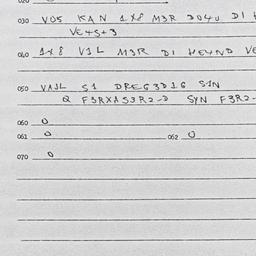 020
030 VOS KAN 1X8 M3R DO4U DI
VE4S+3
040 1X8 V1L M3R DI HE4ND VE
050 VAJL S1 DREG3D1G S1N
Q F3RXAS3R2-D SYN F3R2-
060 0
061 0 062 0
070 0